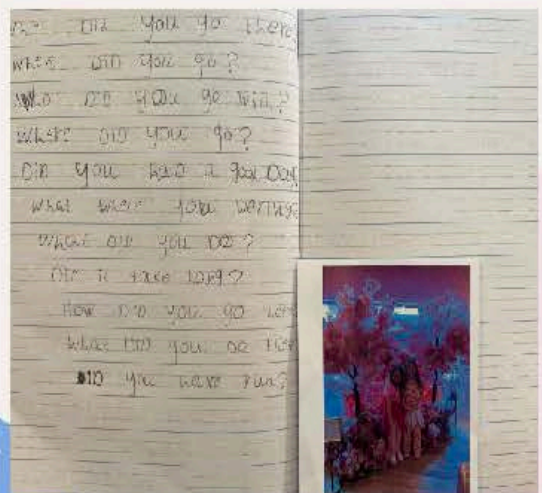 DID you go there
when DID you go?
Who DID you go with?
Where DID you go?
DID you have a good Day
What where you
What DID you DO?
DID it take long?
How DID you go
What DID you DO
DID you have Fun?